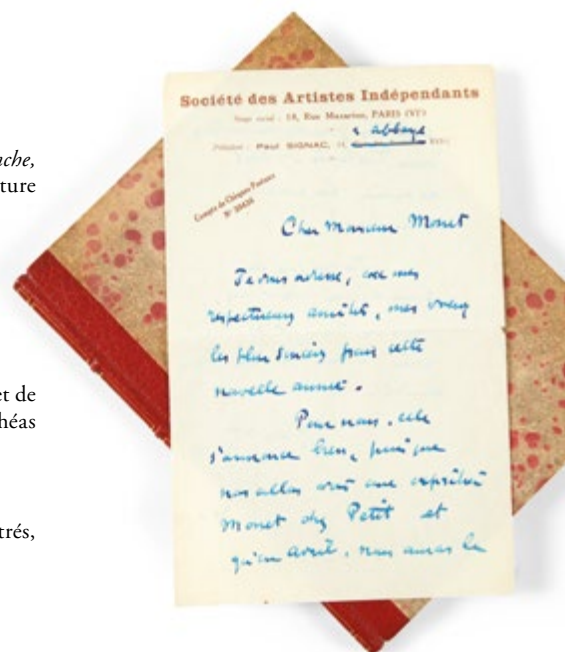 nche,
ture
et de
héas
trés,
Société des Artistes Indépendants
Siège social : 18, Rue Mazarine, PARIS (VIᵉ)
r. abbaye
Président : Paul SIGNAC, 14,
Compte de Chèques Postaux
Cher Monsieur Monet
Je vous adresse, avec mes
respectueuses amitiés, mes vœux
les plus sincères pour cette
nouvelle année.
Pour nous, cela
s'annonce bien, puisque
nous allons avoir une exposition
Monet chez Petit et
qu'en avril, nous aurons le